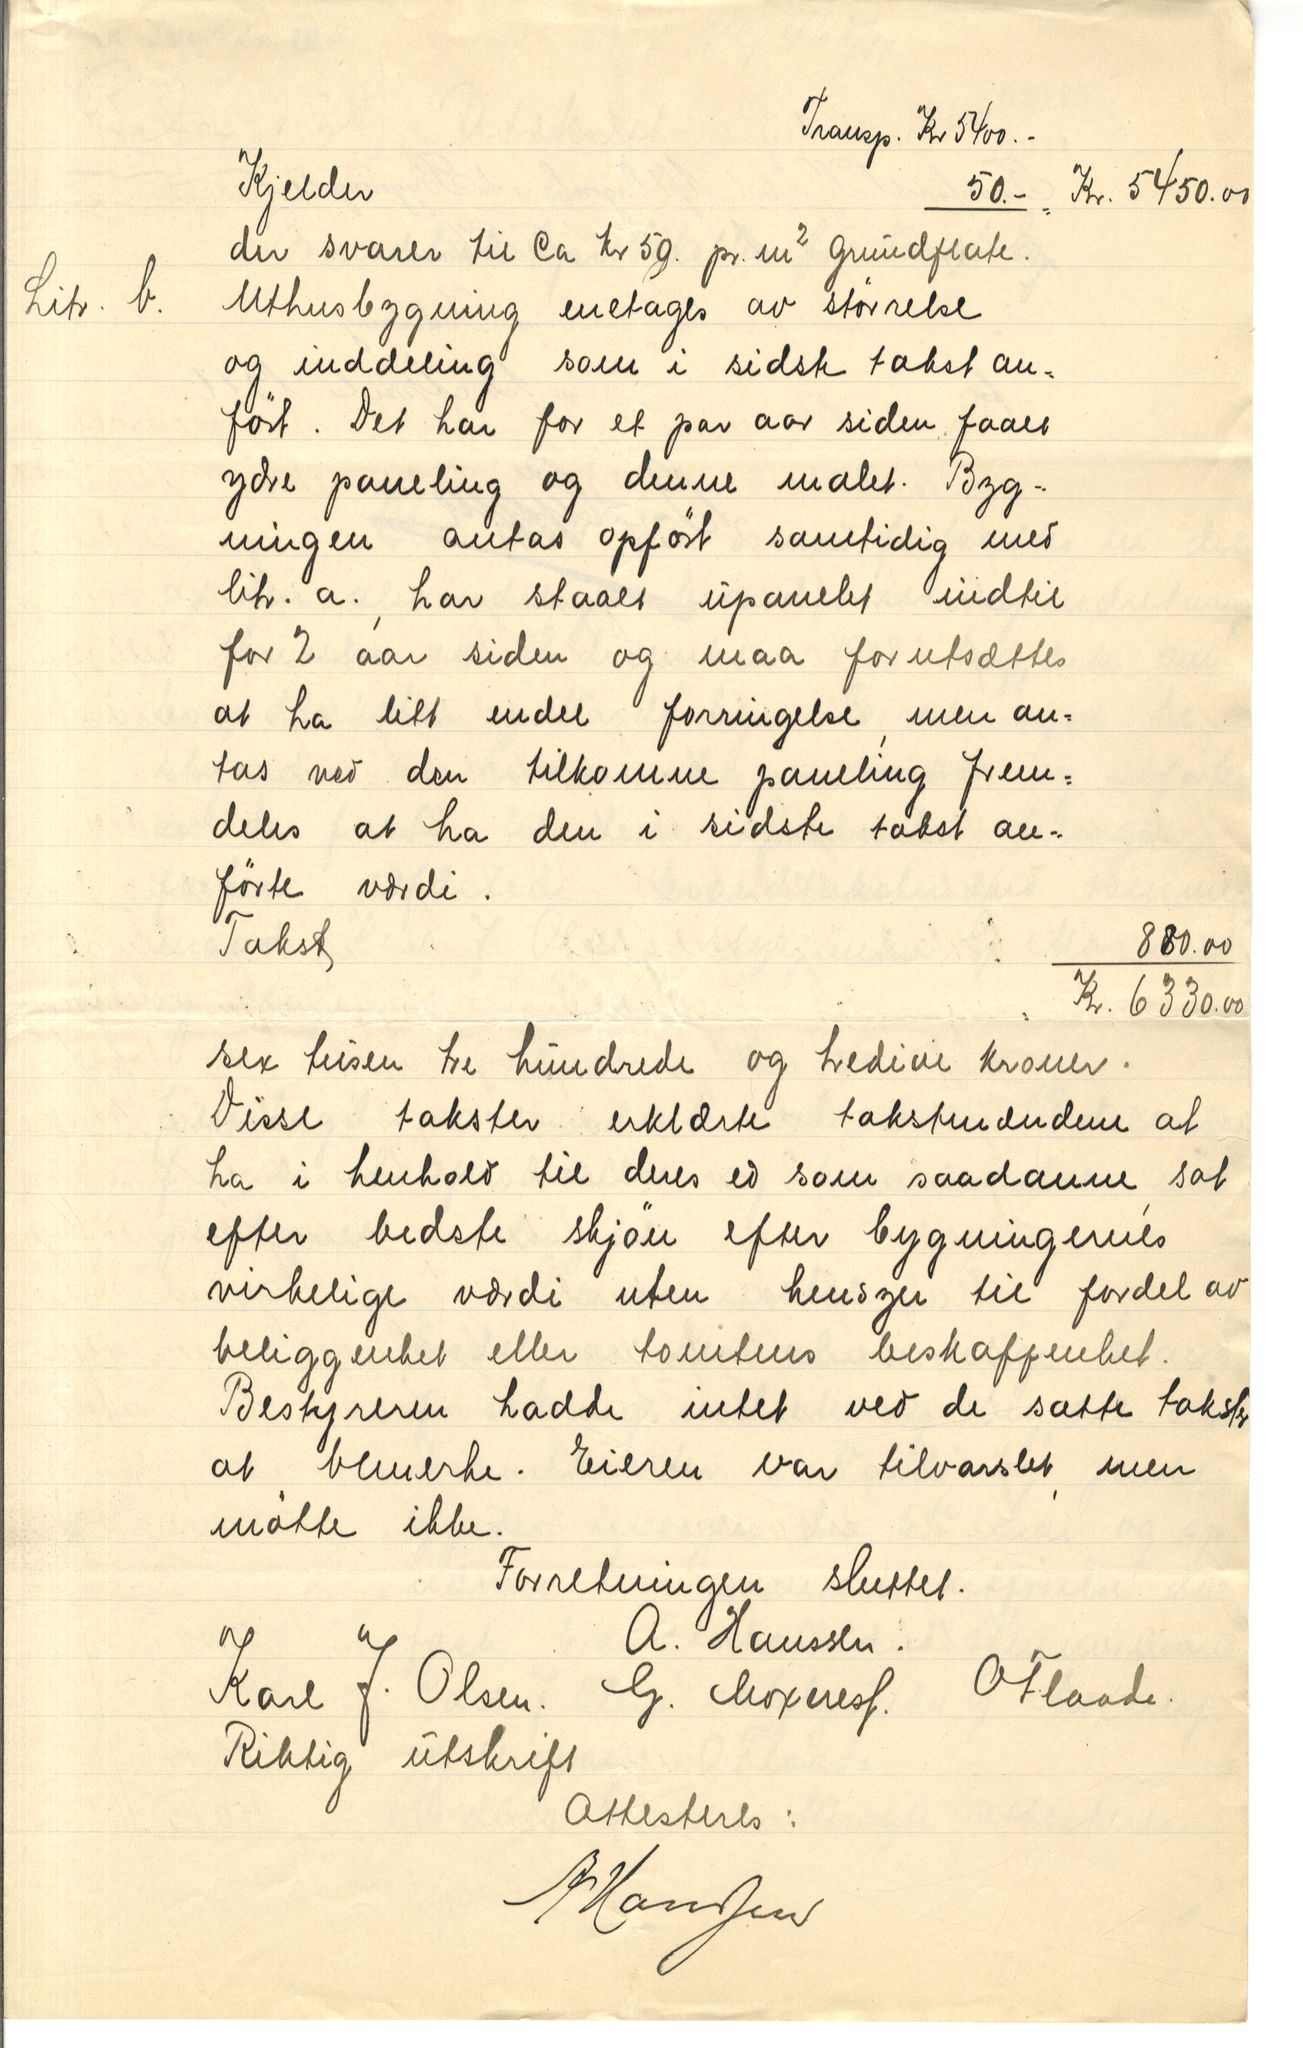 Transp. Kr 5400.-
Kjelder 50.- = Kr. 5450.00
der svarer til Ca kr 59. pr. m² Grundflate.
Litr. b. Uthusbygning enetages av störrelse
og inddeling som i sidste takst an-
fört. Det har for et par aar siden faaet
ydre paneling og denne malet. Byg-
ningen antas opfört samtidig med
litr. a., har staaet upanelet indtil
for 2 aar siden og maa forutsættes
at ha litt endel forringelse, men an-
tas ved den tilkomne paneling frem-
deles at ha den i sidste takst an-
förte værdi.
Takst, 880.00
Kr. 6330.00
sex tusen tre hundrede og tredive kroner.
Disse takster erklærte takstmændene at
ha i henhold til deres ed som saadanne, sat
efter bedste skjön efter bygningernes
virkelige værdi uten hensyn til fordel av
beliggenhet eller tomtens beskaffenhet.
Bestyreren hadde intet ved de satte takster
at bemerke. Eieren var tilvarslet, men
mötte ikke.
Forretningen sluttet.
A. Hanssen.
Karl J. Olsen. G. Moxness. O Flaade.
Riktig utskrift
Attesteres:
A Hanssen